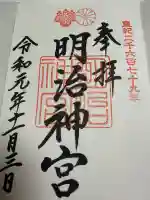 皇紀二千六百七十九年
奉拝
明治神宮
令和元年十一月三日